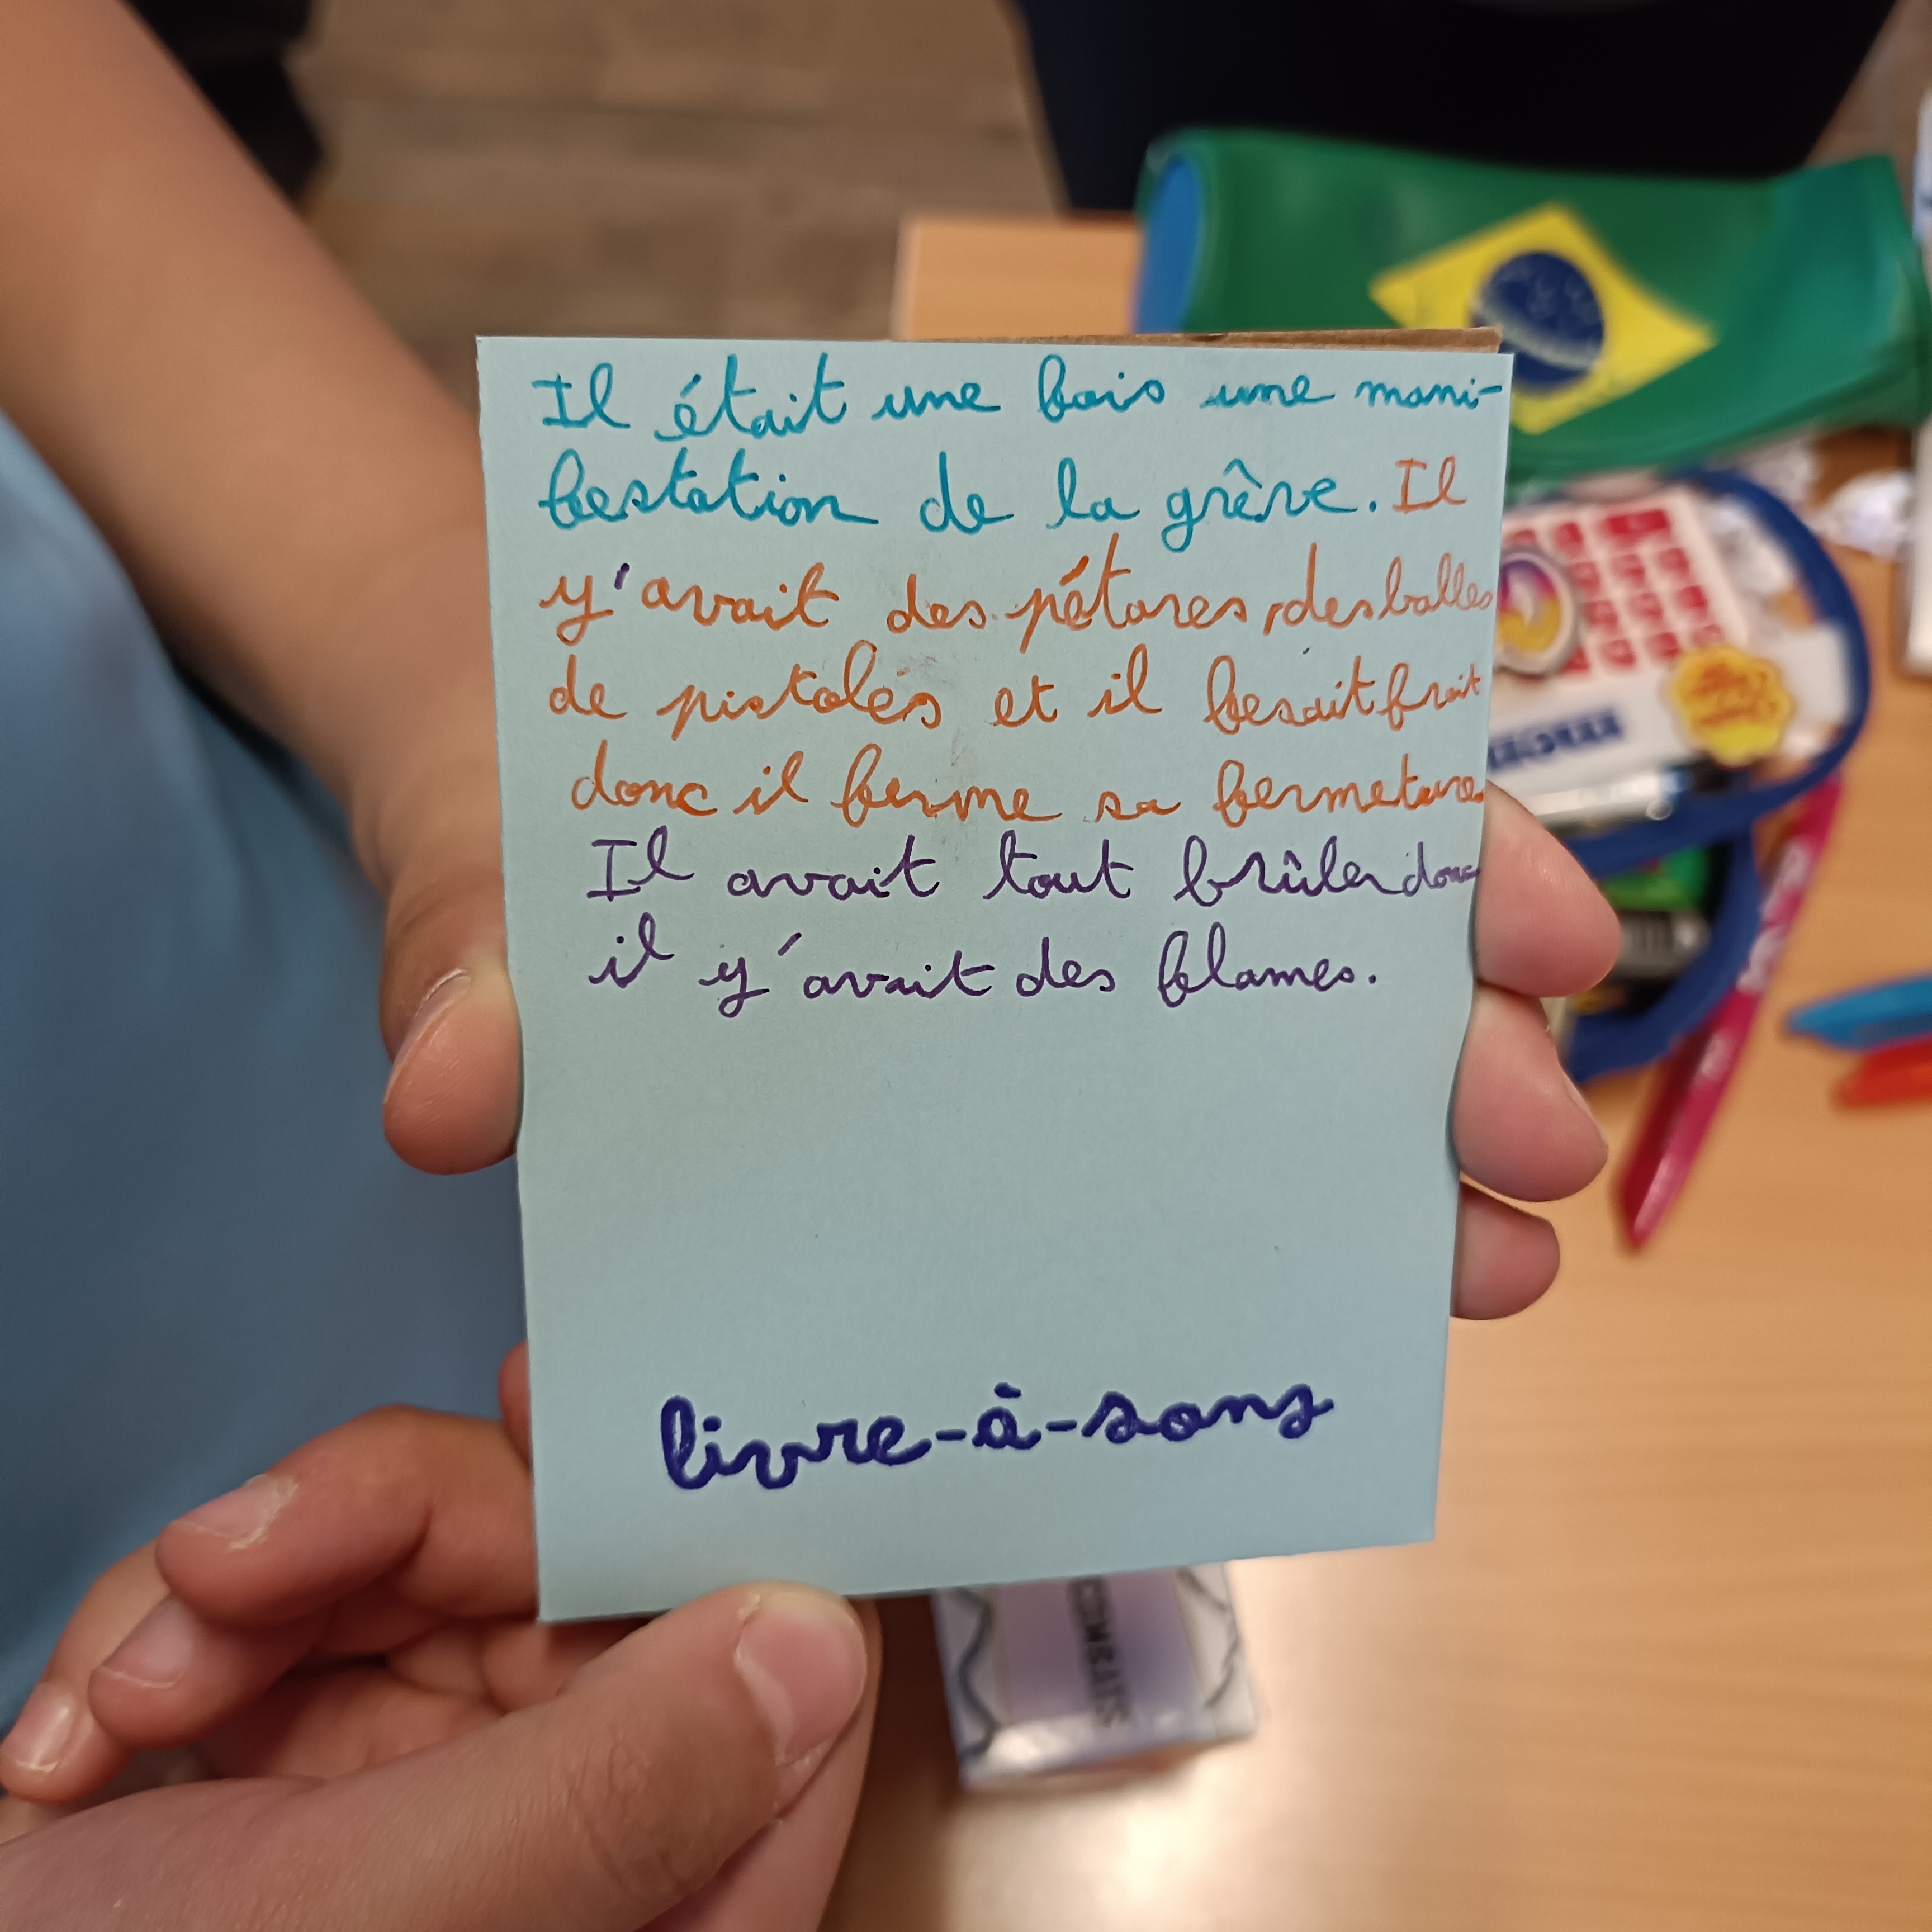 Il était une fois une mani-
festation de la grêve. Il
y'avait des pétares, des balles
de pistolés et il fesait frait
donc il ferme sa fermeture.
Il avait tout brûler donc
il y'avait des flames.
livre-à-sons
COMBATS